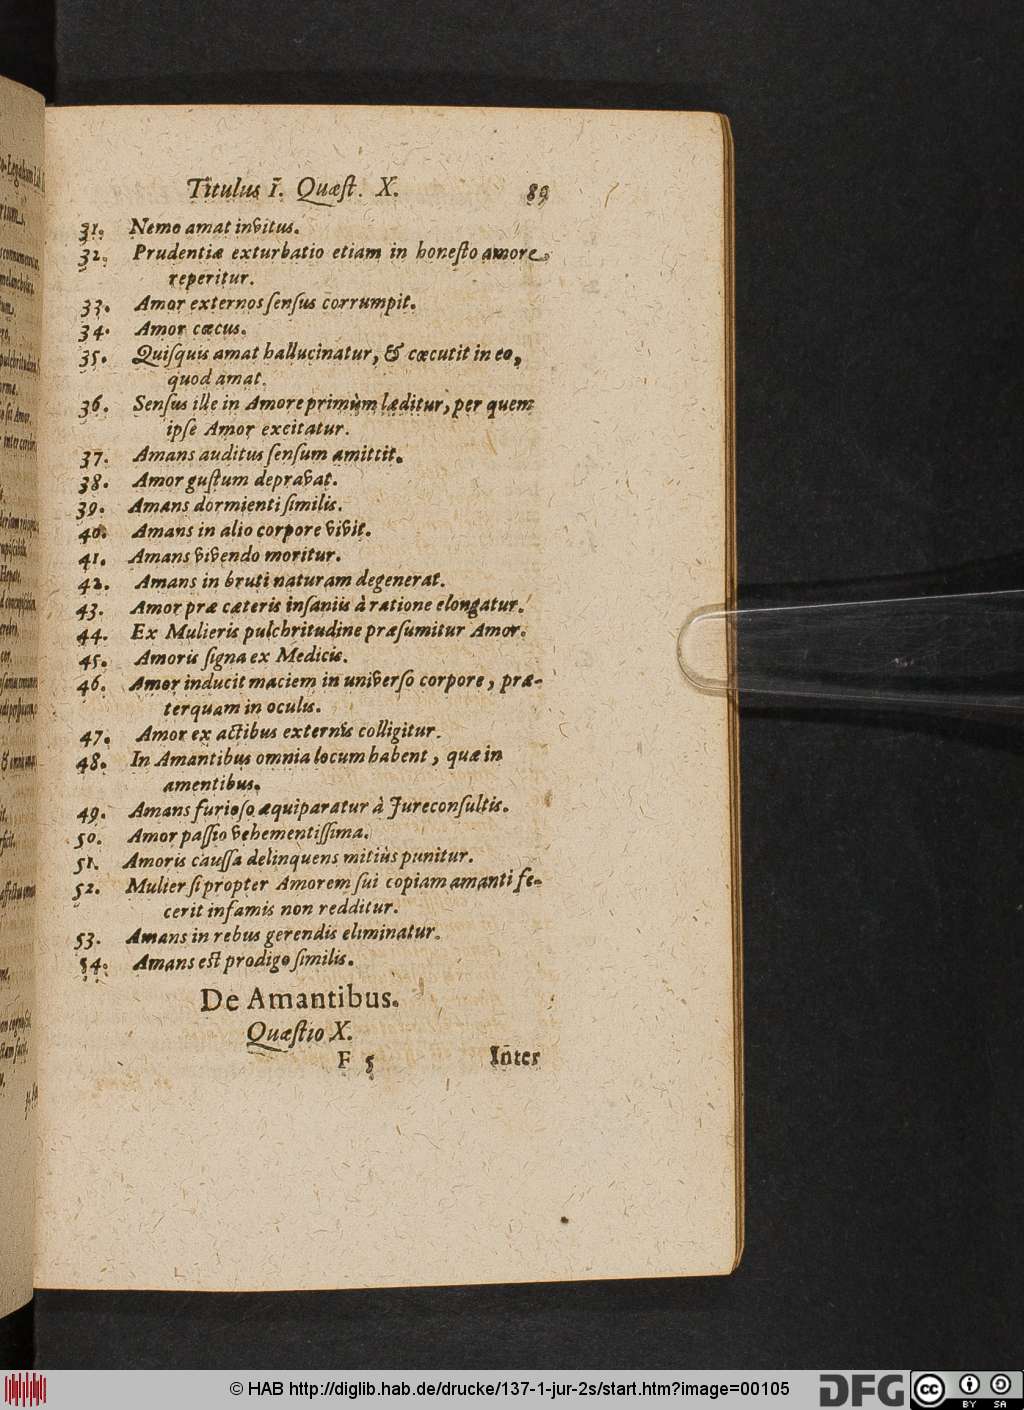 Titulus I. Quæst. X. 89
31. Nemo amat invitus.
32. Prudentiæ exturbatio etiam in honesto amore
reperitur.
33. Amor externos sensus corrumpit.
34. Amor cæcus.
35. Quisquis amat hallucinatur, & cæcutit in eo,
quod amat.
36. Sensus ille in Amore primùm læditur, per quem
ipse Amor excitatur.
37. Amans auditus sensum amittit.
38. Amor gustum depravat.
39. Amans dormienti similis.
40. Amans in alio corpore vivit.
41. Amans vivendo moritur.
42. Amans in bruti naturam degenerat.
43. Amor præ cæteris insaniis à ratione elongatur.
44. Ex Mulieris pulchritudine præsumitur Amor.
45. Amoris signa ex Medicis.
46. Amor inducit maciem in universo corpore, præ-
terquam in oculis.
47. Amor ex actibus externis colligitur.
48. In Amantibus omnia locum habent, quæ in
amentibus.
49. Amans furioso æquiparatur à Jureconsultis.
50. Amor passio vehementissima.
51. Amoris caussa delinquens mitiùs punitur.
52. Mulier si propter Amorem sui copiam amanti fe-
cerit infamis non redditur.
53. Amans in rebus gerendis eliminatur.
54. Amans est prodigo similis.
De Amantibus.
Quæstio X.
F 5 Inter
© HAB http://diglib.hab.de/drucke/137-1-jur-2s/start.htm?image=00105 DFG cc BY SA